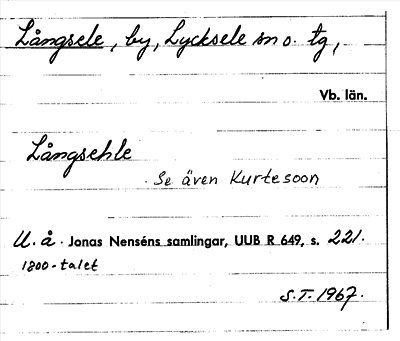 Långsele, by, Lycksele sn o. tg,
Vb. län.
Långsehle
Se även Kurtesoon
U. å. Jonas Nenséns samlingar, UUB R 649, s. 221.
1800-talet
S.T. 1967.